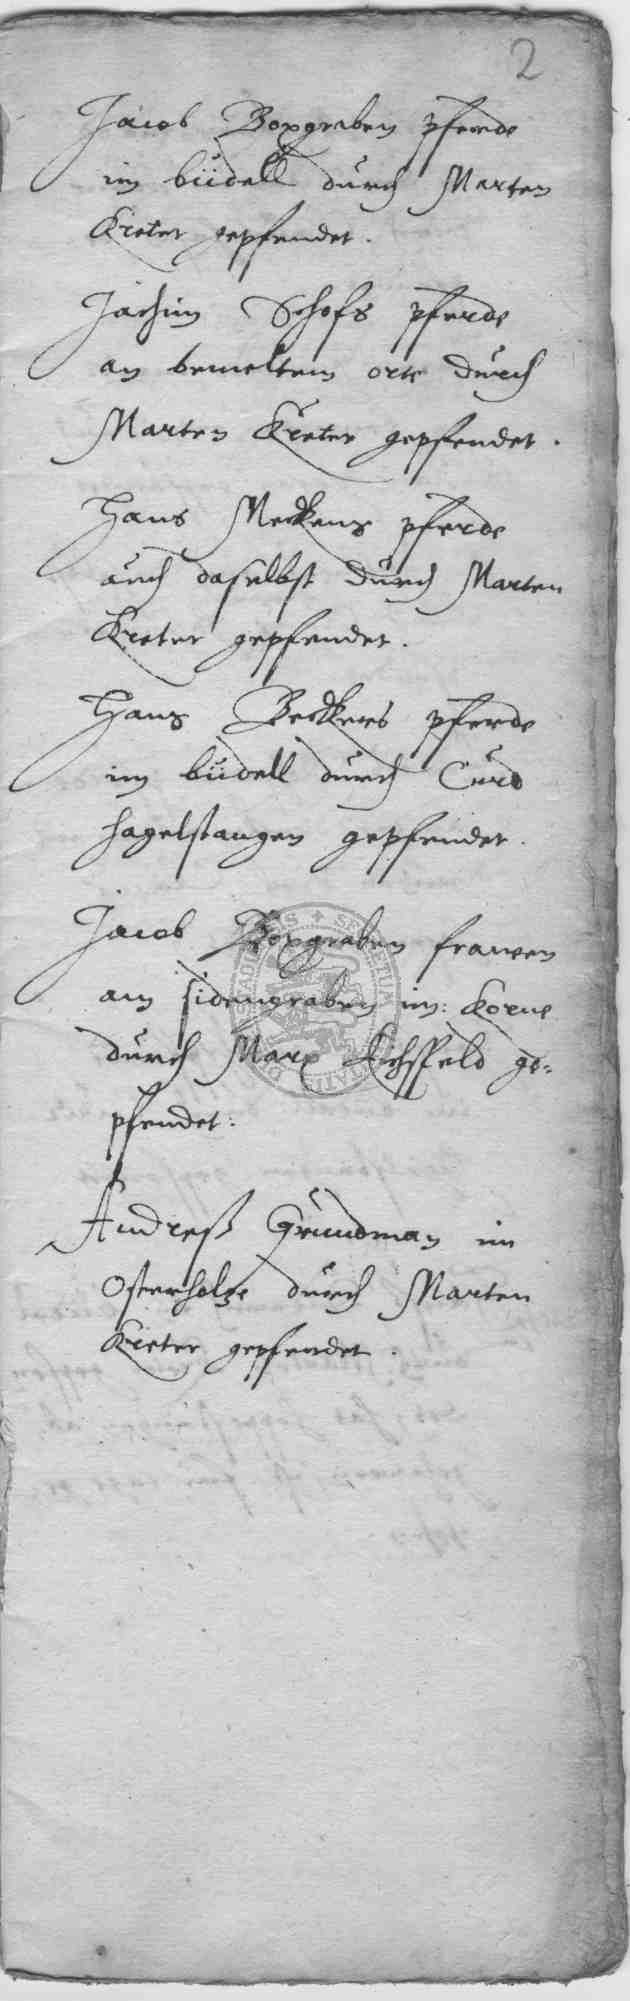 2
Jacob Boxgraben pferde
im büdell durch Marten
Kreter gepfendet.
Jachim Schofs pferde
an bemeltem orte durch
Marten Kreter gepfendet.
Hans Meckens pferde
auch daselbst durch Marten
Kreter gepfendet.
Hans Beckers pferde
im büdell durch Curd
hagelstangen gepfendet.
Jacob Boxgraben frawen
am sidengraben im: Korne
durch Marx Eichsfeld ge-
pfendet:
Andreß Grundman im
Osterholze durch Marten
Kreter gepfendet.